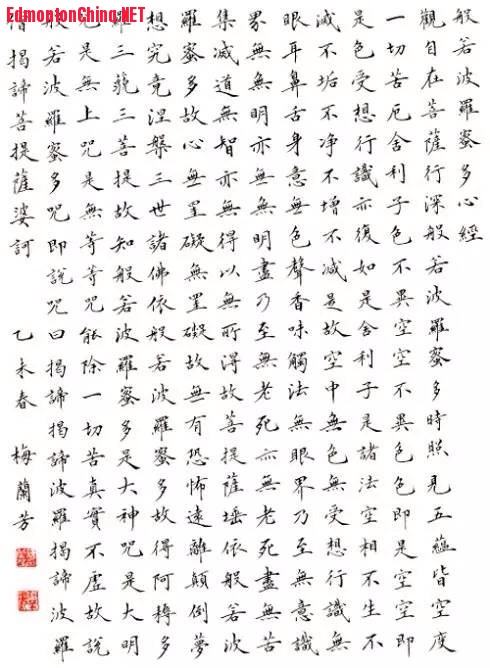 EdmontonChina.NET
般若波羅蜜多心經
觀自在菩薩行深般若波羅蜜多時照見五蘊皆空度
一切苦厄舍利子色不異空空不異色色即是空空即
是色受想行識亦復如是舍利子是諸法空相不生不
滅不垢不净不增不減是故空中無色無受想行識無
眼耳鼻舌身意無色聲香味觸法無眼界乃至無意識
界無無明亦無無明盡乃至無老死亦無老死盡無苦
集滅道無智亦無得以無所得故菩提薩埵依般若波
羅蜜多故心無罣礙無罣礙故無有恐怖遠離顛倒夢
想究竟涅槃三世諸佛依般若波羅蜜多故得阿耨多
羅三藐三菩提故知般若波羅蜜多是大神咒是大明
咒是無上咒是無等等咒能除一切苦真實不虛故說
般若波羅蜜多咒即說咒曰揭諦揭諦波羅揭諦波羅
僧揭諦菩提薩婆訶 乙未春 梅蘭芳